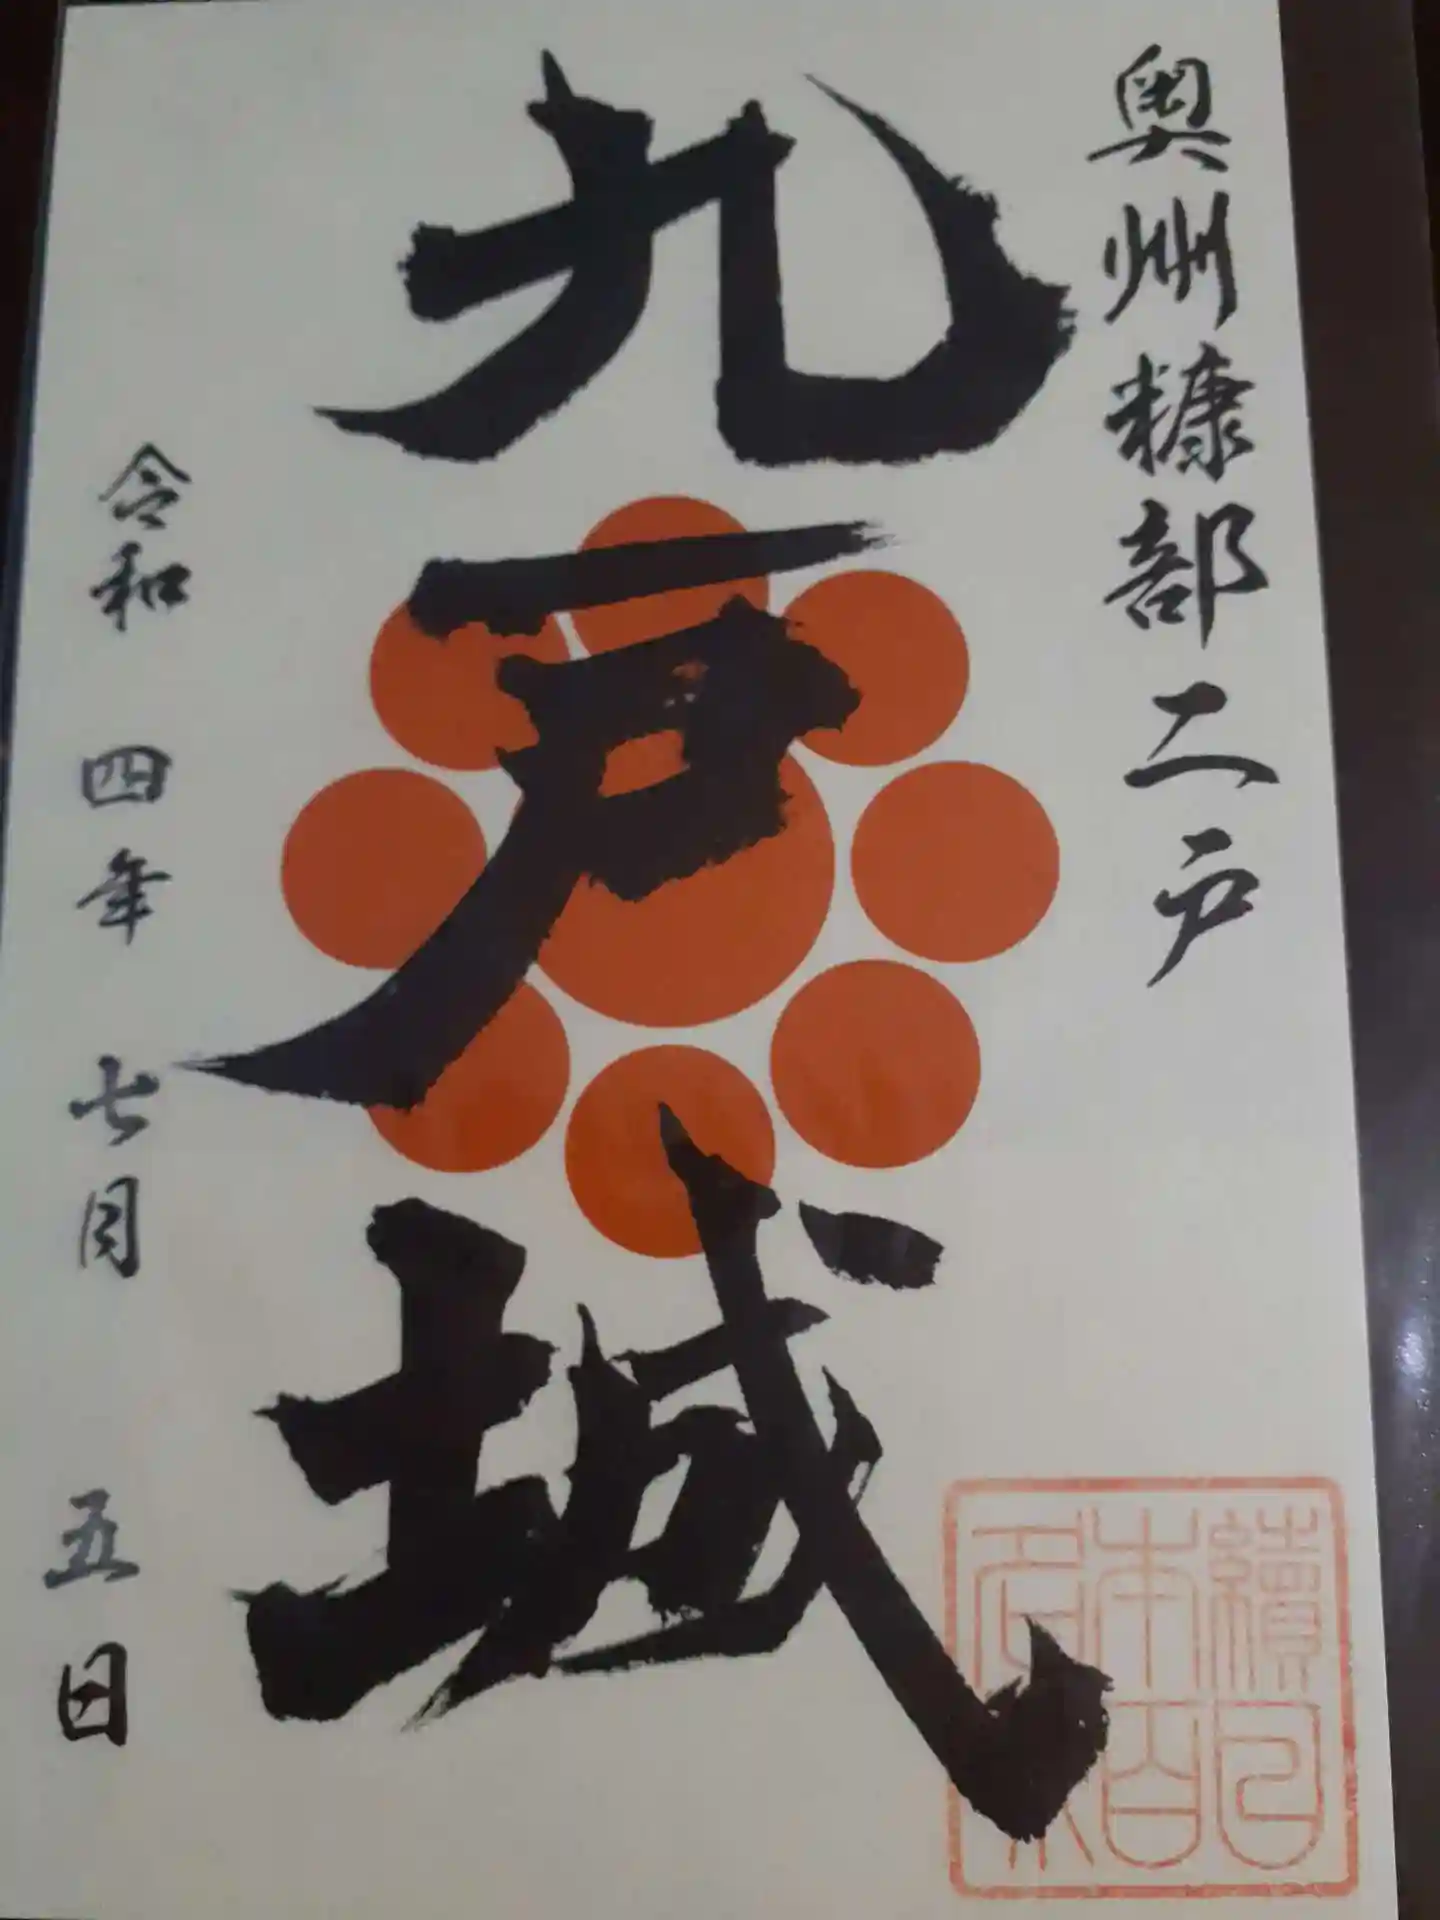 奥州糠部二戸
九戸城
令和四年七月五日
續日本